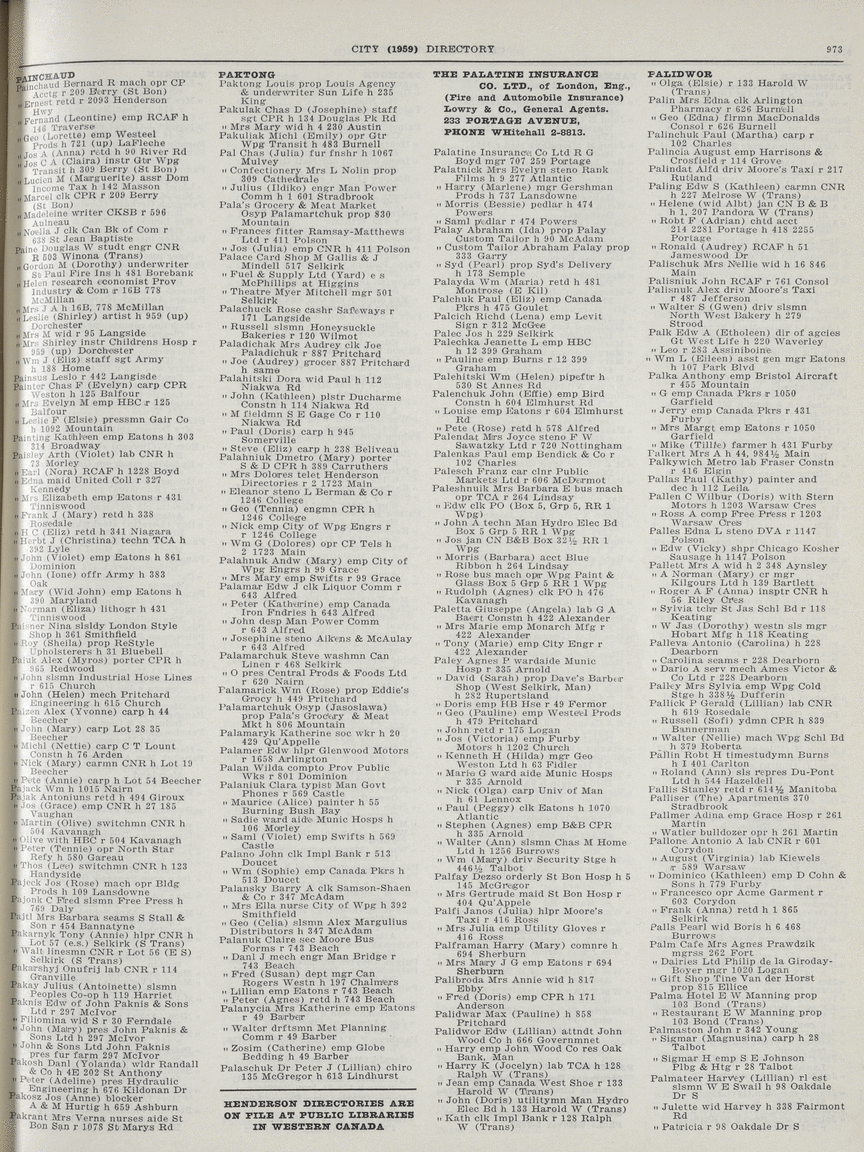 CITY (1959) DIRECTORY
973
PAINCHAUD
Painchaud Bernard R mach opr CP
Acctg r 209 Berry (St Bon)
" Ernest retd r 2093 Henderson
Hwy
" Fernand (Leontine) emp RCAF h
146 Traverse
" Geo (Lorette) emp Westeel
Prods h 721 (up) LaFleche
" Jos A (Anna) retd h 90 River Rd
" Jos C A (Claira) instr Gtr Wpg
Transit h 309 Berry (St Bon)
" Lucien M (Marguerite) assr Dom
Income Tax h 142 Masson
" Marcel clk CPR r 209 Berry
(St Bon)
" Madeleine writer CKSB r 596
Aulneau
" Noella J clk Can Bk of Com r
638 St Jean Baptiste
Paine Douglas W studt engr CNR
R 503 Winona (Trans)
" Gordon M (Dorothy) underwriter
St Paul Fire Ins h 481 Borebank
" Helen research economist Prov
Industry & Com r 16B 778
McMillan
" Mrs J A h 16B, 778 McMillan
" Leslie (Shirley) artist h 959 (up)
Dorchester
" Mrs M wid r 95 Langside
" Mrs Shirley instr Childrens Hosp r
959 (up) Dorchester
" Wm J (Eliz) staff sgt Army
h 188 Home
Painsus Leslo r 442 Langside
Painter Chas F (Evelyn) carp CPR
Weston h 125 Balfour
" Mrs Evelyn M emp HBC r 125
Balfour
" Leslie F (Elsie) pressmn Gair Co
h 1092 Mountain
Painting Kathleen emp Eatons h 303
314 Broadway
Paisley Arth (Violet) lab CNR h
73 Morley
" Earl (Nora) RCAF h 1228 Boyd
" Edna maid United Coll r 327
Kennedy
" Mrs Elizabeth emp Eatons r 431
Tinniswood
" Frank J (Mary) retd h 338
Rosedale
" H C (Eliz) retd h 341 Niagara
" Herbt J (Christina) techn TCA h
392 Lyle
" John (Violet) emp Eatons h 861
Dominion
" John (Ione) offr Army h 383
Oak
" Mary (Wid John) emp Eatons h
390 Maryland
" Norman (Eliza) lithogr h 431
Tinniswood
Paisner Nina slsldy London Style
Shop h 361 Smithfield
" Roy (Sheila) prop ReStyle
Upholsterers h 31 Bluebell
Paiuk Alex (Myros) porter CPR h
965 Redwood
" John slsmn Industrial Hose Lines
r 615 Church
" John (Helen) mech Pritchard
Engineering h 615 Church
Paizen Alex (Yvonne) carp h 44
Beecher
" John (Mary) carp Lot 28 35
Beecher
" Michl (Nettie) carp C T Lount
Constn h 76 Arden
" Nick (Mary) carmn CNR h Lot 19
Beecher
" Pete (Annie) carp h Lot 54 Beecher
Pajack Wm h 1015 Nairn
Pajak Antoniuns retd h 494 Giroux
" Jos (Grace) emp CNR h 27 185
Vaughan
" Martin (Olive) switchmn CNR h
504 Kavanagh
" Olive with HBC r 504 Kavanagh
" Peter (Tennie) opr North Star
Refy h 580 Gareau
" Thos (Lee) switchmn CNR h 123
Handyside
Pajeck Jos (Rose) mach opr Bldg
Prods h 109 Lansdowne
Pajonk C Fred slsmn Free Press h
769 Daly
Pajtl Mrs Barbara seams S Stall &
Son r 454 Bannatyne
Pakarnyk Tony (Annie) hlpr CNR h
Lot 57 (e.s.) Selkirk (S Trans)
" Walt linesmn CNR r Lot 56 (E S)
Selkirk (S Trans)
Pakarshyj Onufrij lab CNR r 114
Granville
Pakay Julius (Antoinette) slsmn
Peoples Co-op h 119 Harriet
Paknis Edw of John Paknis & Sons
Ltd r 297 McIvor
" Filiomina wid S r 30 Ferndale
" John (Mary) pres John Paknis &
Sons Ltd h 297 McIvor
" John & Sons Ltd John Paknis
pres fur farm 297 McIvor
Pakosh Danl (Yolanda) wldr Randall
& Co h 4E 202 St Anthony
" Peter (Adeline) pres Hydraulic
Engineering h 676 Kildonan Dr
Pakosz Jos (Anne) blocker
A & M Hurtig h 659 Ashburn
Pakrant Mrs Verna nurses aide St
Bon San r 1078 St Marys Rd
PAKTONG
Paktong Louis prop Louis Agency
& underwriter Sun Life h 235
King
Pakulak Chas D (Josephine) staff
sgt CPR h 134 Douglas Pk Rd
" Mrs Mary wid h 4 230 Austin
Pakuliak Michl (Emily) opr Gtr
Wpg Transit h 483 Burnell
Pal Chas (Julia) fur fnshr h 1067
Mulvey
" Confectionery Mrs L Nolin prop
309 Cathedrale
" Julius (Ildiko) engr Man Power
Comm h 1 601 Stradbrook
Pala's Grocery & Meat Market
Osyp Palamartchuk prop 830
Mountain
" Frances fitter Ramsay-Matthews
Ltd r 411 Polson
" Jos (Julia) emp CNR h 411 Polson
Palace Card Shop M Gallis & J
Mindell 517 Selkirk
" Fuel & Supply Ltd (Yard) e s
McPhillips at Higgins
" Theatre Myer Mitchell mgr 501
Selkirk
Palachuck Rose cashr Safeways r
171 Langside
" Russell slsmn Honeysuckle
Bakeries r 120 Wilmot
Paladichuk Mrs Audrey clk Joe
Paladichuk r 887 Pritchard
" Joe (Audrey) grocer 887 Pritchard
h same
Palahitski Dora wid Paul h 112
Niakwa Rd
" John (Kathleen) plstr Ducharme
Constn h 114 Niakwa Rd
" M fieldmn S E Gage Co r 110
Niakwa Rd
" Paul (Doris) carp h 945
Somerville
" Steve (Eliz) carp h 238 Beliveau
Palahniuk Dmetro (Mary) porter
S & D CPR h 389 Carruthers
" Mrs Dolores telet Henderson
Directories r 2 1723 Main
" Eleanor steno L Berman & Co r
1246 College
" Geo (Tennia) engmn CPR h
1246 College
" Nick emp City of Wpg Engrs r
r 1246 College
" Wm G (Dolores) opr CP Tels h
2 1723 Main
Palahnuk Andw (Mary) emp City of
Wpg Engrs h 99 Grace
" Mrs Mary emp Swifts r 99 Grace
Palamar Edw J clk Liquor Comm r
643 Alfred
" Peter (Katherine) emp Canada
Iron Fndries h 643 Alfred
" John desp Man Power Comm
r 643 Alfred
" Josephine steno Aikens & McAulay
r 643 Alfred
Palamarchuk Steve washmn Can
Linen r 468 Selkirk
" O pres Central Prods & Foods Ltd
r 620 Nairn
Palamarick Wm (Rose) prop Eddie's
Grocy h 449 Pritchard
Palamartchuk Osyp (Jasoslawa)
prop Pala's Grocery & Meat
Mkt h 806 Mountain
Palamaryk Katherine soc wkr h 20
429 Qu'Appelle
Palamer Edw hlpr Glenwood Motors
r 1658 Arlington
Palan Wilda compto Prov Public
Wks r 801 Dominion
Palaniuk Clara typist Man Govt
Phones r 569 Castle
" Maurice (Alice) painter h 55
Burning Bush Bay
" Sadie ward aide Munic Hosps h
106 Morley
" Saml (Violet) emp Swifts h 569
Castle
Palano John clk Impl Bank r 513
Doucet
" Wm (Sophie) emp Canada Pkrs h
513 Doucet
Palansky Barry A clk Samson-Shaen
& Co r 347 McAdam
" Mrs Ella nurse City of Wpg h 392
Smithfield
" Geo (Celia) slsmn Alex Margulius
Distributors h 347 McAdam
Palanuk Claire sec Moore Bus
Forms r 743 Beach
" Danl J mech engr Man Bridge r
743 Beach
" Fred (Susan) dept mgr Can
Rogers Westn h 197 Chalmers
" Lillian emp Eatons r 743 Beach
" Peter (Agnes) retd h 743 Beach
Palanycia Mrs Katherine emp Eatons
r 49 Barber
" Walter drftsmn Met Planning
Comm r 49 Barber
" Zosim (Catherine) emp Globe
Bedding h 49 Barber
Palaschuk Dr Peter J (Lillian) chiro
135 McGregor h 613 Lindhurst
HENDERSON DIRECTORIES ARE
ON FILE AT PUBLIC LIBRARIES
IN WESTERN CANADA
THE PALATINE INSURANCE
CO. LTD., of London, Eng.,
(Fire and Automobile Insurance)
Lowry & Co., General Agents.
233 PORTAGE AVENUE,
PHONE WHitehall 2-8813.
Palatine Insurance Co Ltd R G
Boyd mgr 707 259 Portage
Palatnick Mrs Evelyn steno Rank
Films h 9 277 Atlantic
" Harry (Marlene) mgr Gershman
Prods h 737 Lansdowne
" Morris (Bessie) pedlar h 474
Powers
" Saml pedlar r 474 Powers
Palay Abraham (Ida) prop Palay
Custom Tailor h 90 McAdam
" Custom Tailor Abraham Palay prop
333 Garry
" Syd (Pearl) prop Syd's Delivery
h 173 Semple
Palayda Wm (Maria) retd h 481
Montrose (E Kil)
Palchuk Paul (Eliz) emp Canada
Pkrs h 475 Goulet
Palcich Richd (Lena) emp Levit
Sign r 312 McGee
Palec Jos h 229 Selkirk
Palechka Jeanette L emp HBC
h 12 399 Graham
" Pauline emp Burns r 12 399
Graham
Palehitski Wm (Helen) pipeftr h
530 St Annes Rd
Palenchuk John (Effie) emp Bird
Constn h 604 Elmhurst Rd
" Louise emp Eatons r 604 Elmhurst
Rd
" Pete (Rose) retd h 578 Alfred
Palendat Mrs Joyce steno F W
Sawatzky Ltd r 720 Nottingham
Palenkas Paul emp Bendick & Co r
102 Charles
Palesch Franz car clnr Public
Markets Ltd r 606 McDermot
Paleshnuik Mrs Barbara E bus mach
opr TCA r 264 Lindsay
" Edw clk PO (Box 5, Grp 5, RR 1
Wpg)
" John A techn Man Hydro Elec Bd
Box 5 Grp 5 RR 1 Wpg
" Jos jan CN B&B Box 32½ RR 1
Wpg
" Morris (Barbara) acct Blue
Ribbon h 264 Lindsay
" Rose bus mach opr Wpg Paint &
Glass Box 5 Grp 5 RR 1 Wpg
" Rudolph (Agnes) clk PO h 476
Kavanagh
Paletta Giuseppe (Angela) lab G A
Baert Constn h 422 Alexander
" Mrs Marie emp Monarch Mfg r
422 Alexander
" Tony (Marie) emp City Engr r
422 Alexander
Paley Agnes P wardaide Munic
Hosp r 335 Arnold
" David (Sarah) prop Dave's Barber
Shop (West Selkirk, Man)
h 282 Rupertsland
" Doris emp HB Hse r 49 Fermor
" Geo (Pauline) emp Westeel Prods
h 479 Pritchard
" John retd r 175 Logan
" Jos (Victoria) emp Furby
Motors h 1202 Church
" Kenneth H (Hilda) mgr Geo
Weston Ltd h 63 Pidler
" Marie G ward aide Munic Hosps
r 335 Arnold
" Nick (Olga) carp Univ of Man
h 61 Lennox
" Paul (Peggy) clk Eatons h 1070
Atlantic
" Stephen (Agnes) emp B&B CPR
h 335 Arnold
" Walter (Ann) slsmn Chas M Home
Ltd h 1256 Burrows
" Wm (Mary) driv Security Stge h
446½ Talbot
Palfay Dezso orderly St Bon Hosp h 5
145 McGregor
" Mrs Gertrude maid St Bon Hosp r
404 Qu'Appelle
Palfi Janos (Julia) hlpr Moore's
Taxi r 416 Ross
" Mrs Julia emp Utility Gloves r
416 Ross
Palframan Harry (Mary) comnre h
694 Sherburn
" Mrs Mary J G emp Eatons r 694
Sherburn
Palibroda Mrs Annie wid h 817
Ebby
" Fred (Doris) emp CPR h 171
Anderson
Palidwar Max (Pauline) h 858
Pritchard
Palidwor Edw (Lillian) attndt John
Wood Co h 666 Governmnet
" Harry emp John Wood Co res Oak
Bank, Man
" Harry K (Jocelyn) lab TCA h 128
Ralph W (Trans)
" Jean emp Canada West Shoe r 133
Harold W (Trans)
" John (Doris) utilitymn Man Hydro
Elec Bd h 133 Harold W (Trans)
" Kath clk Impl Bank r 128 Ralph
W (Trans)
PALIDWOR
" Olga (Elsie) r 133 Harold W
(Trans)
Palin Mrs Edna clk Arlington
Pharmacy r 626 Burnell
" Geo (Edna) flrmn MacDonalds
Consol r 626 Burnell
Palinchuk Paul (Martha) carp r
102 Charles
Palincia August emp Harrisons &
Crosfield r 114 Grove
Palindat Alfd driv Moore's Taxi r 217
Rutland
Paling Edw S (Kathleen) carmn CNR
h 227 Melrose W (Trans)
" Helene (wid Albt) jan CN B & B
h 1, 207 Pandora W (Trans)
" Robt F (Adrian) chtd acct
214 2281 Portage h 418 2255
Portage
" Ronald (Audrey) RCAF h 51
Jameswood Dr
Palischuk Mrs Nellie wid h 16 846
Main
Palisnuk John RCAF r 761 Consol
Palisnuk Alex driv Moore's Taxi
r 487 Jefferson
" Walter S (Gwen) driv slsmn
North West Bakery h 279
Strood
Palk Edw A (Etholeen) dir of agcies
Gt West Life h 220 Waverley
" Leo r 283 Assiniboine
" Wm L (Eileen) asst gen mgr Eatons
h 107 Park Blvd
Palka Anthony emp Bristol Aircraft
r 455 Mountain
" G emp Canada Pkrs r 1050
Garfield
" Jerry emp Canada Pkrs r 431
Furby
" Mrs Margt emp Eatons r 1050
Garfield
" Mike (Tillie) farmer h 431 Furby
Palkert Mrs A h 44, 984½ Main
Palkywich Metro lab Fraser Constn
r 416 Elgin
Pallas Paul (Kathy) painter and
dec h 112 Leila
Pallen C Wilbur (Doris) with Stern
Motors h 1203 Warsaw Cres
" Ross A comp Free Press r 1203
Warsaw Cres
Palles Edna L steno DVA r 1147
Polson
" Edw (Vicky) shpr Chicago Kosher
Sausage h 1147 Polson
Pallett Mrs A wid h 2 348 Aynsley
" A Norman (Mary) cr mgr
Kilgours Ltd h 139 Bartlett
" Roger A F (Anna) insptr CNR h
56 Riley Cres
" Sylvia tchr St Jas Schl Bd r 118
Keating
" W Jas (Dorothy) westn sls mgr
Hobart Mfg h 118 Keating
Palleva Antonio (Carolina) h 228
Dearborn
" Carolina seams r 228 Dearborn
" Dario A serv mech Ames Victor &
Co Ltd r 228 Dearborn
Palley Mrs Sylvia emp Wpg Cold
Stge h 338½ Dufferin
Pallick P Gerald (Lillian) lab CNR
h 619 Rosedale
" Russell (Sofi) ydmn CPR h 839
Bannerman
" Walter (Nellie) mach Wpg Schl Bd
h 379 Roberta
Pallin Robt H timestudymn Burns
h 1 401 Carlton
" Roland (Ann) sls repres Du-Pont
Ltd h 544 Hazeldell
Pallis Stanley retd r 614½ Manitoba
Palliser (The) Apartments 370
Stradbrook
Pallmer Adina emp Grace Hosp r 261
Martin
" Watler bulldozer opr h 261 Martin
Pallone Antonio A lab CNR r 601
Corydon
" August (Virginia) lab Kiewels
r 589 Warsaw
" Dominico (Kathleen) emp D Cohn &
Sons h 779 Furby
" Francesco opr Acme Garment r
603 Corydon
" Frank (Anna) retd h 1 865
Selkirk
Palls Pearl wid Boris h 6 468
Burrows
Palm Cafe Mrs Agnes Prawdzik
mgrss 262 Fort
" Dairies Ltd Philip de la Giroday-
Boyer mgr 1020 Logan
" Gift Shop Tine Van der Horst
prop 815 Ellice
Palma Hotel E W Manning prop
103 Bond (Trans)
" Restaurant E W Manning prop
103 Bond (Trans)
Palmaston John r 342 Young
" Sigmar (Magnusina) carp h 28
Talbot
" Sigmar H emp S E Johnson
Plbg & Htg r 28 Talbot
Palmateer Harvey (Lillian) rl est
slsmn W E Swail h 98 Oakdale
Dr S
" Julette wid Harvey h 338 Fairmont
Rd
" Patricia r 98 Oakdale Dr S